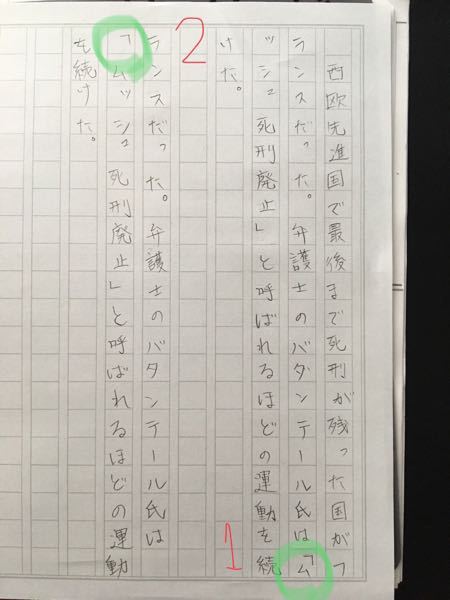 西欧先進国で最後まで死刑が残った国がフ
ランスだった。弁護士のバダンテール氏は「ム
ッシュ死刑廃止」と呼ばれるほどの運動を続
けた。
1
2
ランスだった。弁護士のバダンテール氏は
「ムッシュ死刑廃止」と呼ばれるほどの運動
を続けた。